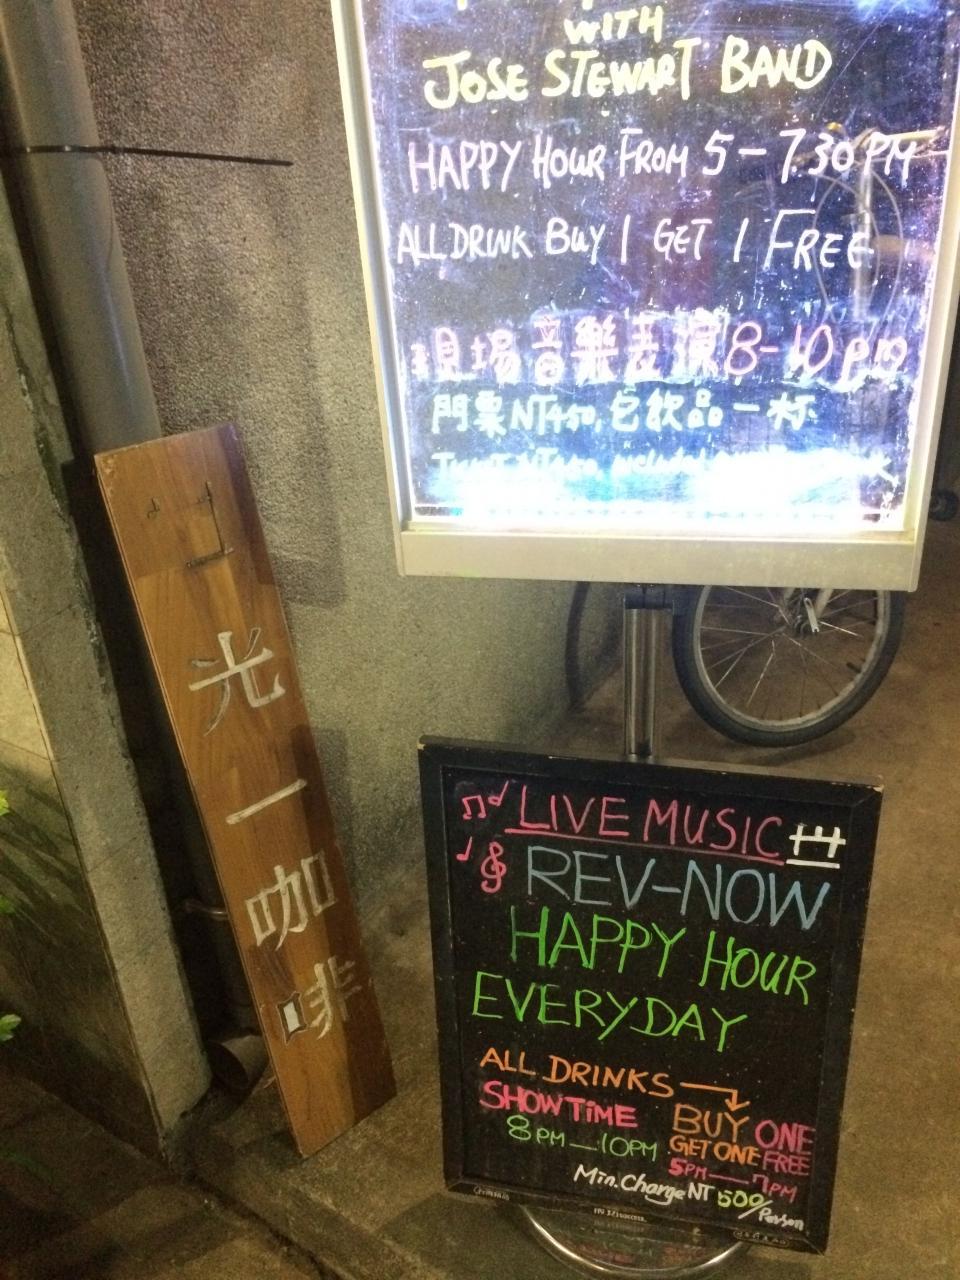 WITH
JOSE STEWART BAND
HAPPY HOUR FROM 5-7.30 PM
ALL DRINK BUY 1 GET 1 FREE
現場音樂表演 8-10pm
門票NT450,包飲品一杯
included
光一咖啡
LIVE MUSIC
REV-NOW
HAPPY HOUR
EVERYDAY
ALL DRINKS
SHOWTIME
8PM—10PM
BUY ONE
GET ONE FREE
5PM—7PM
Min.Charge NT 500/Person